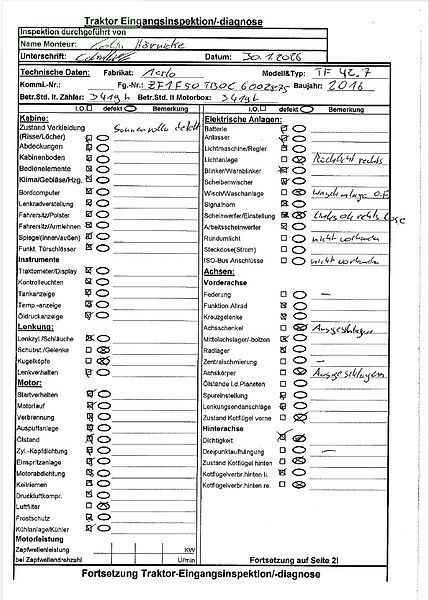 Traktor Eingangsinspektion/-diagnose
Inspektion durchgeführt von
Name Monteur:
Unterschrift: Datum: 30.1.2026
Technische Daten: Fabrikat: Merlo Modell&Typ: TF 42.7
Kommi.-Nr.: Fg.-Nr.: Baujahr: 2016
Betr.Std. lt. Zähler: 3419h Betr.Std. lt Motorbox: 3419h
I.O. defekt Bemerkung
Kabine:
Zustand Verkleidung
(Risse/Löcher) Sonnenrollo defekt
Abdeckungen
Kabinenboden
Bedienelemente
Klima/Gebläse/Hzg.
Bordcomputer
Lenkradverstellung
Fahrersitz/Polster
Fahrersitz/Armlehnen
Spiegel(innen/außen)
Funkt. Türschlösser
Instrumente
Traktometer/Display
Kontrolleuchten
Tankanzeige
Temp.-anzeige
Öldruckanzeige
Lenkung:
Lenkzyl./Schläuche
Schubst./Gelenke
Kugelköpfe
Lenkverhalten
Motor:
Startverhalten
Motorlauf
Verbrennung
Auspuffanlage
Ölstand
Zyl.-Kopfdichtung
Einspritzanlage
Motorabdichtung
Keilriemen
Druckluftkompr.
Luftfilter
Frostschutz
Kühlanlage/Kühler
Motorleistung
Zapfwellenleistung KW
bei Zapfwellendrehzahl U/min
I.O. defekt Bemerkung
Elektrische Anlagen:
Batterie
Anlasser
Lichtmaschine/Regler
Lichtanlage Rücklicht rechts
Blinker/Warnblinker
Scheibenwischer
Wisch/Waschanlage Waschanlage o.F.
Signalhorn
Scheinwerfer/Einstellung
Arbeitsscheinwerfer
Rundumlicht nicht vorhanden
Steckdose(Strom)
ISO-Bus Anschlüsse nicht vorhanden
Achsen:
Vorderachse
Federung –
Funktion Allrad
Kreuzgelenke
Achsschenkel Ausgeschlagen
Mittelachslager/-bolzen
Radlager
Zentralschmierung –
Achskörper Ausgeschlagen
Ölstände Ld.Planeten
Spureinstellung
Lenkungsendanschläge
Zustand Kotflügel vorne
Hinterachse
Dichtigkeit
Dreipunktaufhängung –
Zustand Kotflügel hinten
Kotflügelverbr.hinten li.
Kotflügelverbr.hinten re.
Fortsetzung auf Seite 2!
Fortsetzung Traktor-Eingangsinspektion/-diagnose